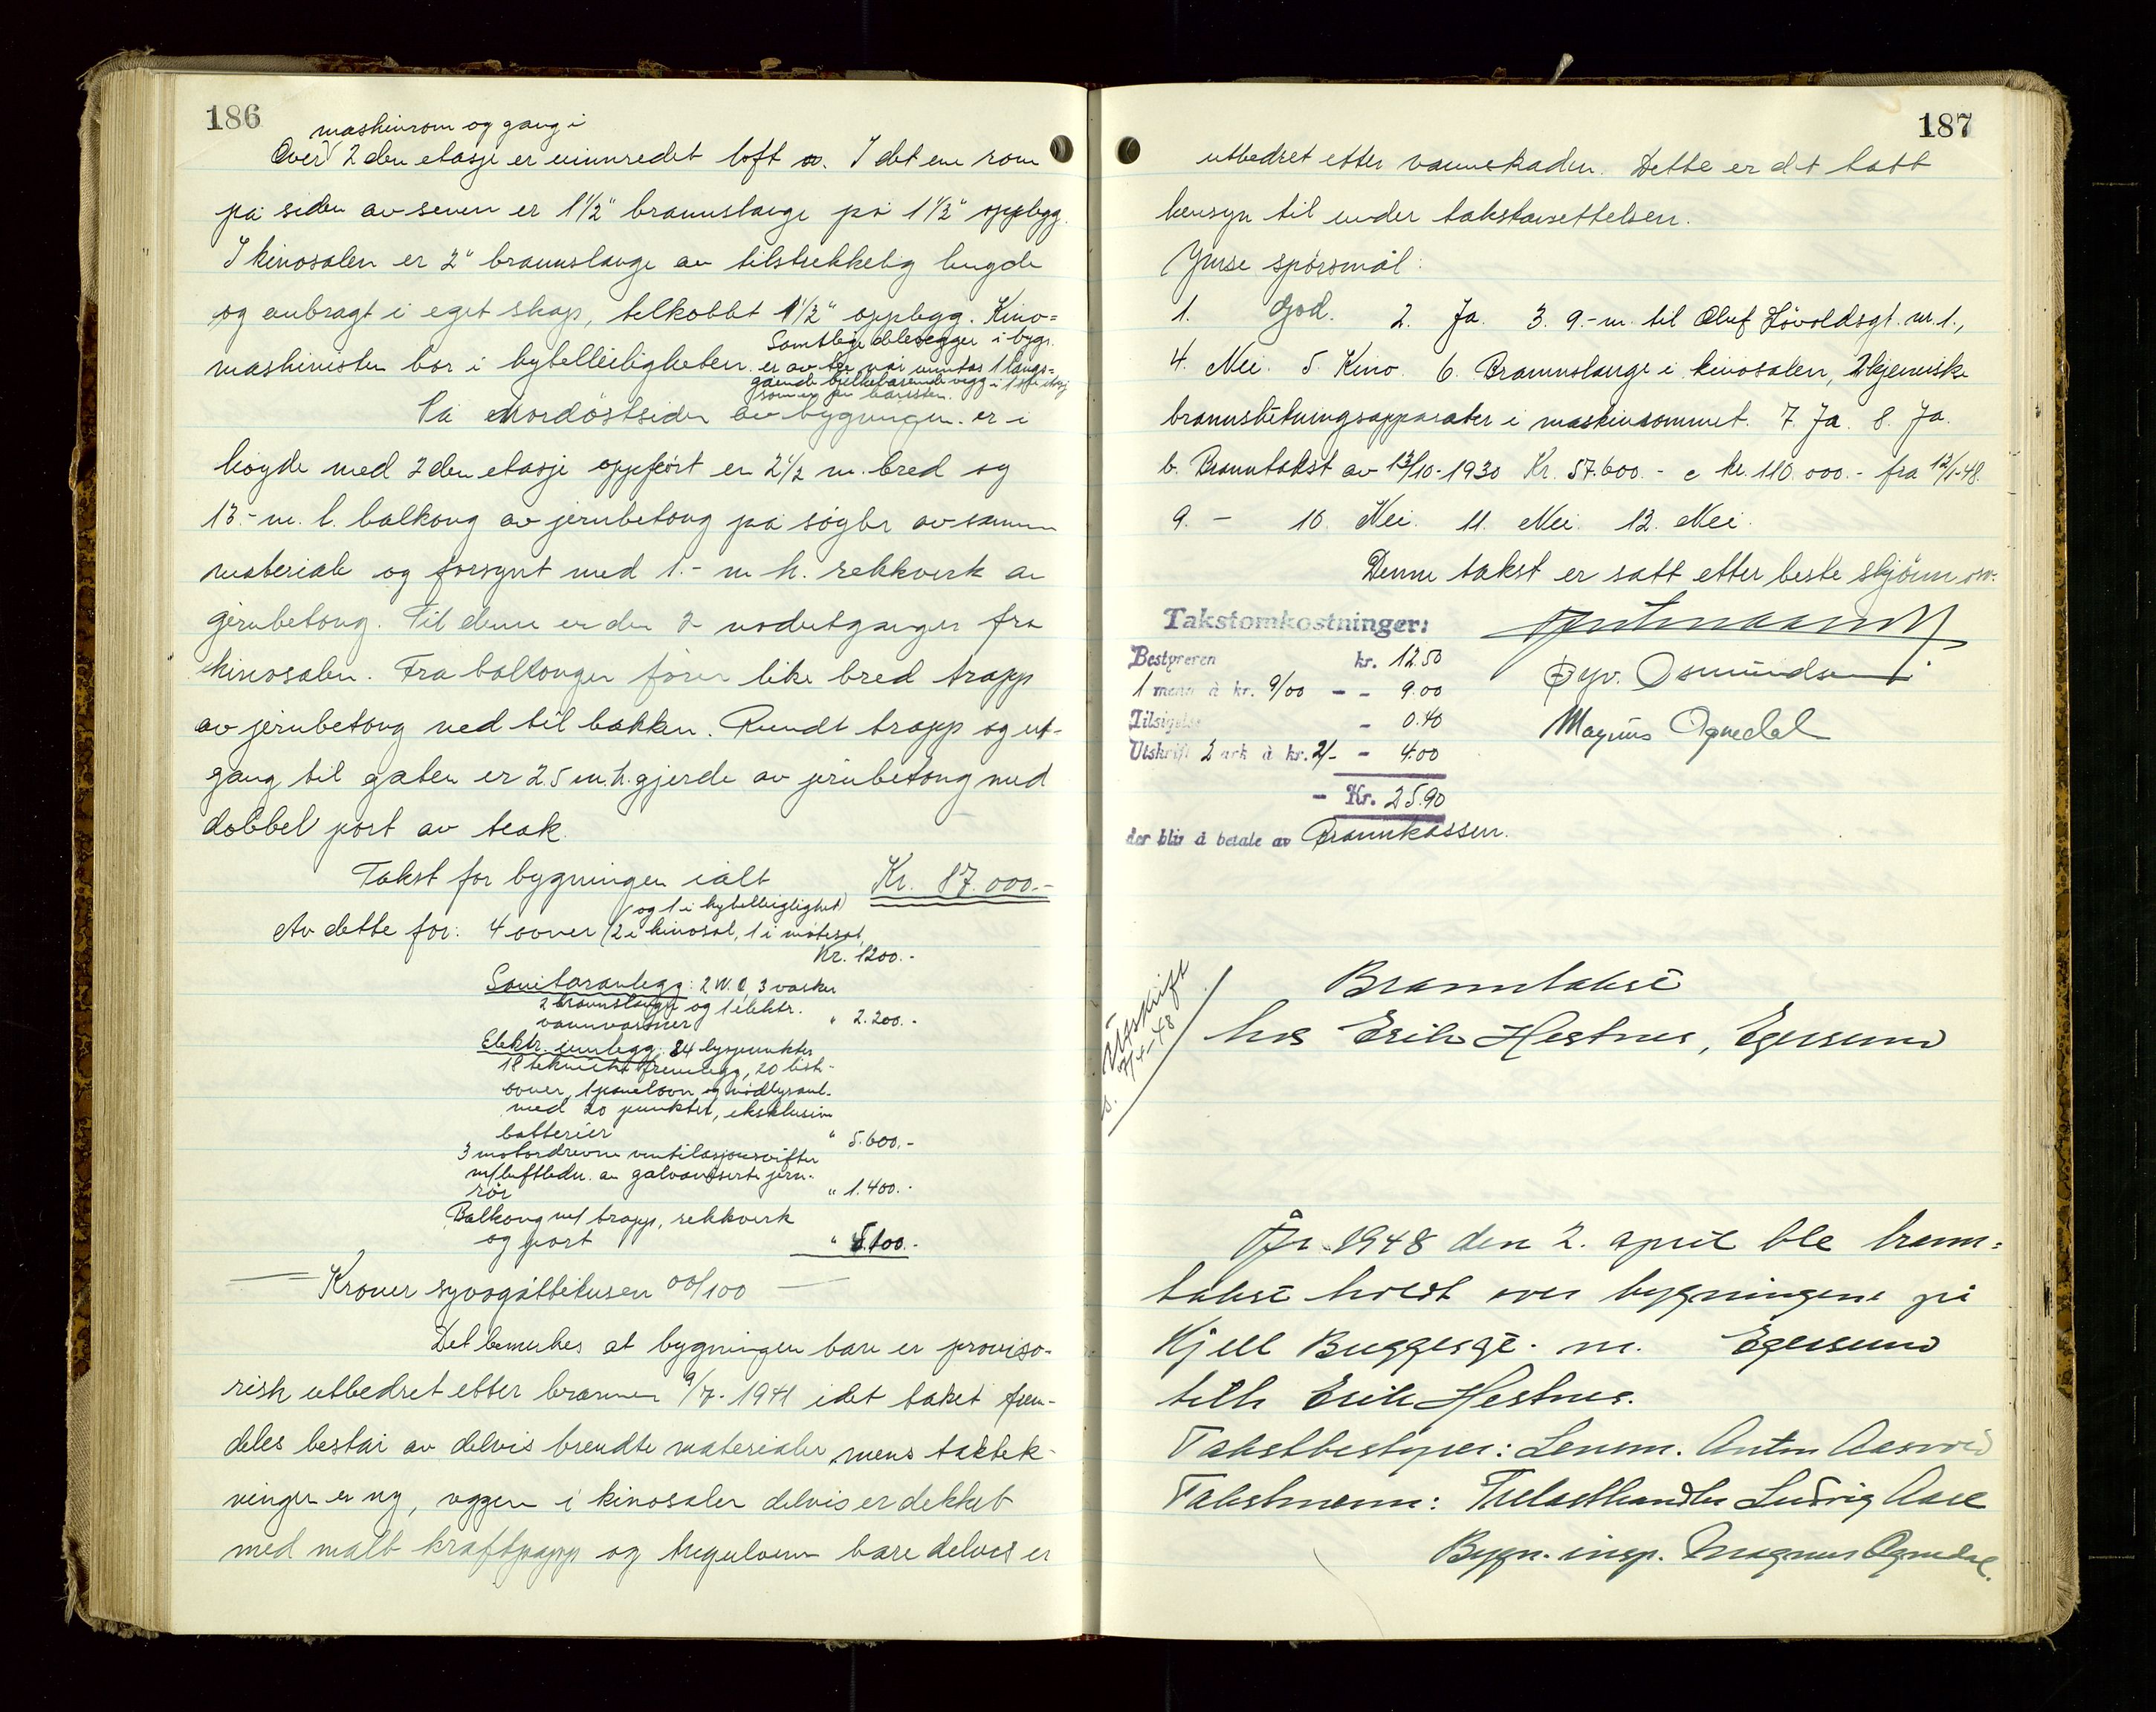 186
maskinrom og gang i
Over 2den etasje er uinnredet loft. I det ene rom
på siden av senen er 1½" brannslange på 1½" opplegg.
I kinosalen er 2" brannslange av tilstrekkelig lengde
og anbragt i eget skap, tilkoblet 1½" opplegg. Kino=
maskinisten bor i hybelleiligheten. Samtlige delevegger i bygn.
er av tre når unntas 1 langs=
gående bjelkebærende vegg i 1ste etasj
som er
På Nordöstsiden av bygningen er i
höyde med 2den etasje oppfört en 2½ m. bred og
13.- m. l. balkong av jernbetong på söyler av samme
materiale og forsynt med 1.- m h. rekkverk av
jernbetong. Til denne er der 2 nödutganger fra
kinosalen. Fra balkongen förer like bred trapp
av jernbetong ned til bakken. Rundt trapp og ut-
gang til gaten er 2.5 m. h. gjerde av jernbetong med
dobbel port av teak.
Takst for bygningen ialt Kr. 87.000.-
Av dette for: 4 ovner (2 i kinosal, 1 i mötesal,
og 1 i hybelleiglighet)
Kr. 1200.-
Sanitæranlegg: 2 W.C, 3 vasker
2 brannslanger og 1 elektr.
vannvarmer " 2.200.-
Elektr. innlegg: 84 lyspunkter
18 tekniske fremlegg, 20
ovner, 1 panelovn og nödlysanl.
med 20 punkter, eksklusive
batterier " 5.600.-
3 motordrevne ventilasjonsvifter
m/luftledn. av galvaniserte jern-
rör " 1.400.-
Balkong m/ trapp, rekkverk
og port " 5.100.-
Kroner syvogåttitusen 00/100
Det bemerkes at bygningen bare er proviso-
risk utbedret etter brannen 9/7-1941 idet taket frem-
deles består av delvis brendte materialer, mens taktek-
ningen er ny, veggene i kinosalen delvis er dekket
med malt kraftpapp og tregulvene bare delvis er
187
utbedret etter vannskaden. Dette er det tatt
hensyn til under takstansettelsen.
Ymse spörsmål:
1. God. 2. Ja. 3. 9.-m. til Oluf Lövoldsgt. nr. 1.,
4. Nei. 5. Kino. 6. Brannslange i kinosalen, 2 kjemiske
brannslukningsapparater i maskinrommet. 7. Ja. 8. Ja.
b. Branntakst av 13/10-1930 Kr. 57.600.- c kr. 110.000.- fra 12/1-48.
9. - 10. Nei. 11. Nei. 12. Nei.
Denne takst er satt etter beste skjönn osv.
Takstomkostninger:
Bestyreren kr. 12.50
1 menn à kr. 9/00 - - 9.00
Tilsigelse - 0.40
Utskrift 2 ark à kr. 2/- - 4.00
- Kr. 25.90
der bliv å betale av Brannkassen.
Osmundsen.
Magnus Ognedal
Utskrift
7/4-48
Branntakst
hos Erik Hestnes, Egersund
År 1948 den 2. april ble brann=
takst holdt over bygningene på
Kjell Buggesgt. nr. Egersund
tilh Erik Hestnes.
Takstbestyrer: Lensm. Anton Aasvold
Takstmenn: Trelasthandler Ludvig Aase
Bygn. insp. Magnus Ognedal.